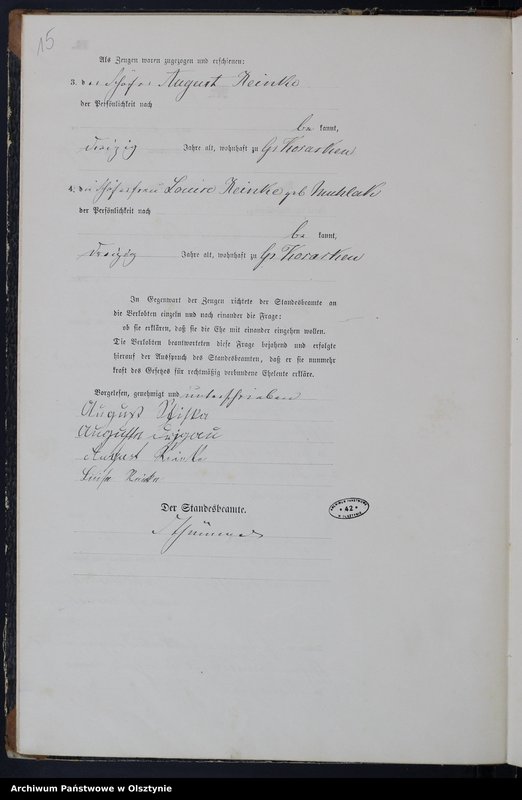 15
Als Zeugen waren zugezogen und erschienen:
3. der Schäfer August Reinke
der Persönlichkeit nach
be kannt,
dreizig Jahre alt, wohnhaft zu Gr
4. die Schäferfrau Louise Reinke geb
der Persönlichkeit nach
be kannt,
dreizig Jahre alt, wohnhaft zu Gr
In Gegenwart der Zeugen richtete der Standesbeamte an
die Verlobten einzeln und nach einander die Frage:
ob sie erklären, daß sie die Ehe mit einander eingehen wollen.
Die Verlobten beantworteten diese Frage bejahend und erfolgte
hierauf der Ausspruch des Standesbeamten, daß er sie nunmehr
kraft des Gesetzes für rechtmäßig verbundene Eheleute erkläre.
Vorgelesen, genehmigt und unterschrieben
August
Augusta
August Reinke
Luise Reinke
Der Standesbeamte.
42
Archiwum Państwowe w Olsztynie